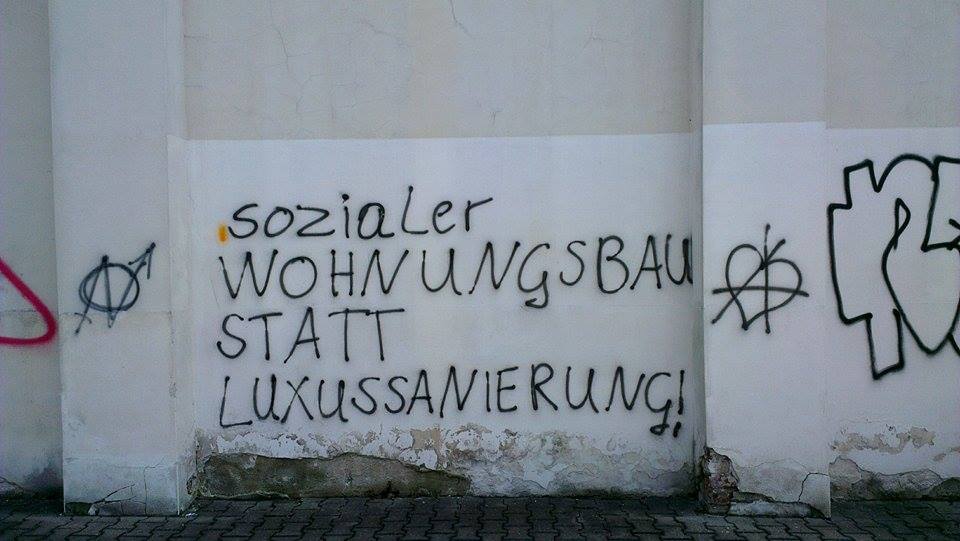 sozialer
WOHNUNGSBAU
STATT
LUXUSSANIERUNG!